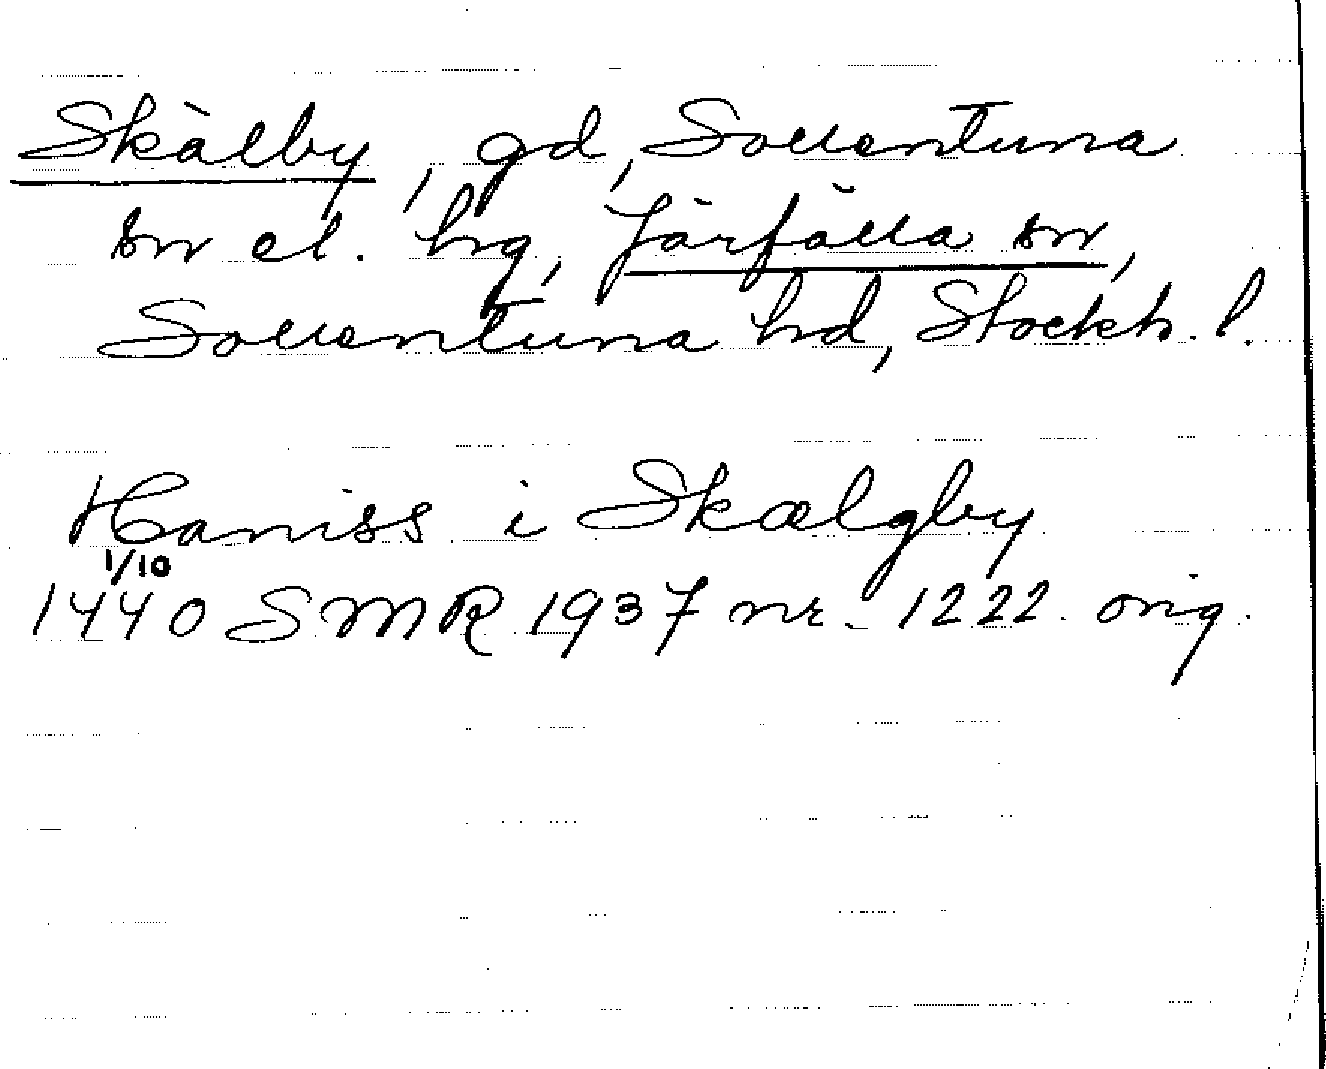 Skälby, gd, Sollentuna
sn el. hg, Järfälla sn,
Sollentuna hd, Stockh. l.
Haniss i Skælgby
1/10
1440 SMR 1937 nr. 1222 orig.